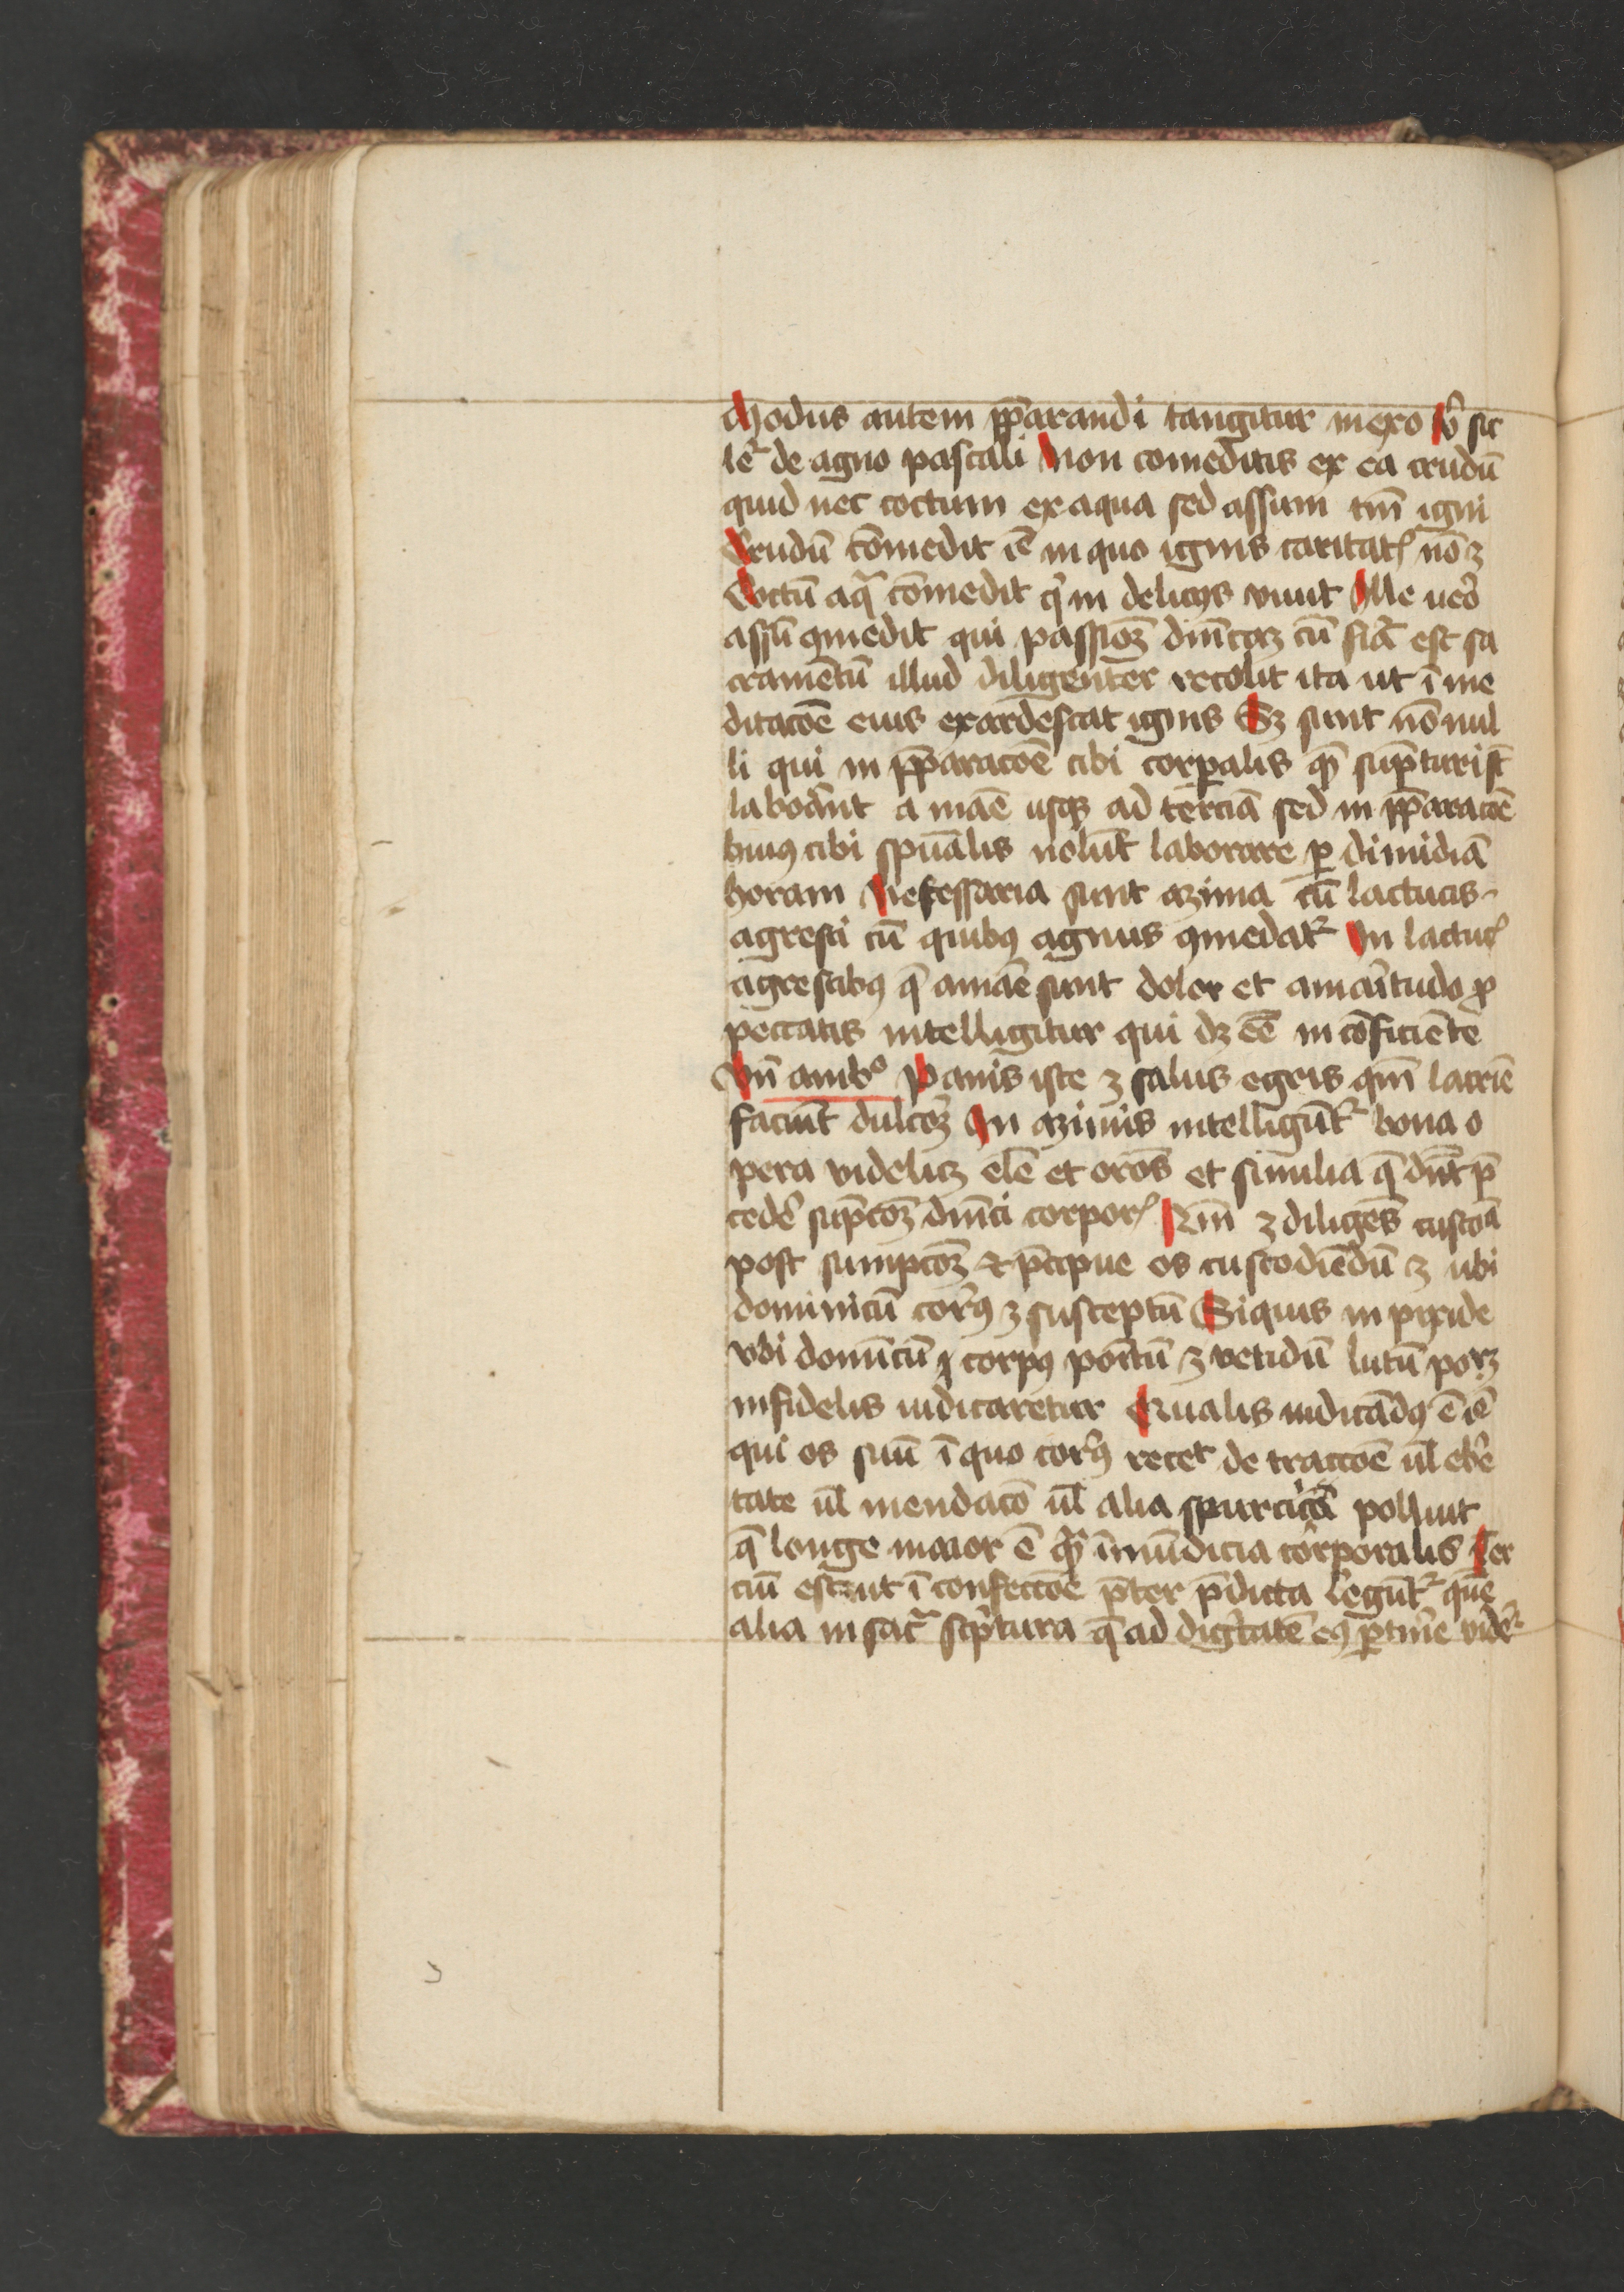 Modus autem ꝑꝑarandi tangitur in exo vͦ sic
lēr de agno pascali Non comeditis ex ea crudū
quid nec coctum ex aqua sed assum tm̄ igni
Crudū cōmedit iē in quo ignis caritatꝭ nō ꝫ
Coctū aqͣ cōmedit qͥ in delicijs viuit Ille ueͦ
assū ꝯmedit qui passiōꝫ dn̄icaꝫ cū sic̄a est sa
cramētū illud diligenter recolit ita ut ī me
ditacōe eius exardescat ignis Sꝫ sunt nōnul
li qui in p̄paracōe cibi corꝑalis qm̄ sūpturi st̄
laborant a mae usqꝫ ad tercia sed in p̄paracōe
huiꝰ cibi spūalis nolūt laborare ꝑ dimidiā
horam Necessaria sunt azima cū lactucis
agresti cū quibꝰ agnus ꝯmedatᷣ In lactucꝭ
agrestibꝰ q̄ amare sunt dolor et amaritudo ꝓ
peccatis intelligitur qui dꝫ eē in cōficiēte
Vn̄ ambͦ Panis iste ꝫ salus egris qm̄
faciūt dulcoꝫ In azimis intelligūtᷣ bona o
pera videlicꝫ ele et orōs et similia q̄ dn̄t p̄
cedē supcōꝫ dn̄ici corporꝭ ꝫ diligens custodia
post sumpcōꝫ ⁊ p̄cipue os custodiēdū ꝫ ubi
dominicū corꝰ ꝫ susceptū Siquis in pixide
vbi domīcū corpꝰ portū ꝫ lutū
infidelis iudicaretur Qualis iudicādꝰ ē iē
qui os suū ī quo corꝰ recet de tractōe ul̄ ebͥe
tate ul̄ mendacō ul̄ alia spurcicia polluit
q̄ longe maior ē qͣm īmūdicia corporalis Ter
ciū est ut ī confectōe p̄ter p̄dicta legūtᷣ que
alia in sacͣ scͥptura q̄ ad dignitatē eiꝰ ꝑtinē vidēᷣ